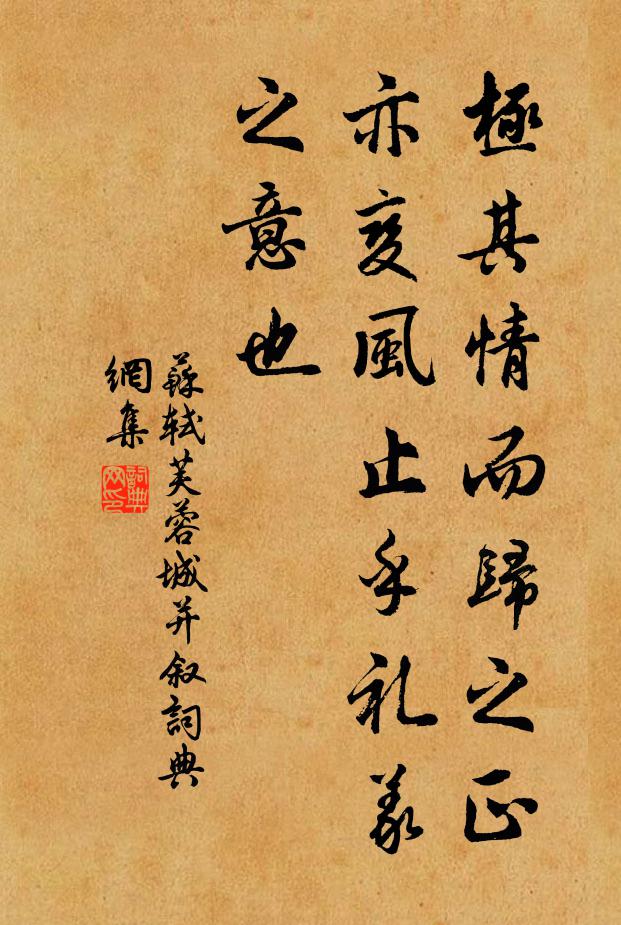 極其情而歸之正
亦變風止乎礼義
之意也
蘇軾芙蓉城并叙詞典
網集
詞典
网印